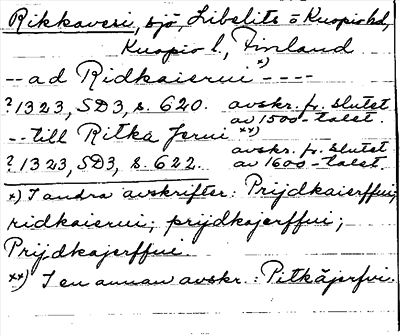 Rikkavesi, sjö, Libelits ö Kuopio hd,
Kuopio l., Finland
-- ad Ridkaierui x) ----
? 1323, SD3, s. 620. avskr. fr. slutet
av 1500-talet.
-- till Ritka Jerui xx)
avskr. fr. slutet
? 1323, SD3, s. 622. av 1600-talet.
x) I andra avskrifter: Prijdkaierffui,
ridkaierui; prijdkajerffui;
Prijdkajerffue.
xx) I en annan avskr.: Pitkäjerfvi.